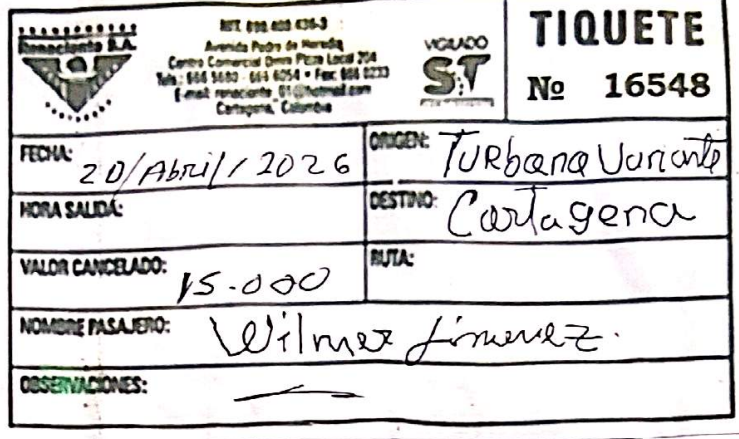 Renaciente S.A.
NIT. 890.403.436-3
Avenida Pedro de Heredia
Centro Comercial Omni Plaza Local 204
Tels.: 666 5680 - 666 6054 • Fax: 666 0233
E-mail: renaciente_01@hotmail.com
Cartagena, Colombia
VIGILADO
ST
TIQUETE
No 16548
FECHA: 20/Abril/2026
ORIGEN: Turbana Variante
HORA SALIDA:
DESTINO: Cartagena
VALOR CANCELADO: 15.000
RUTA:
NOMBRE PASAJERO: Wilmer Jimenez.
OBSERVACIONES: —